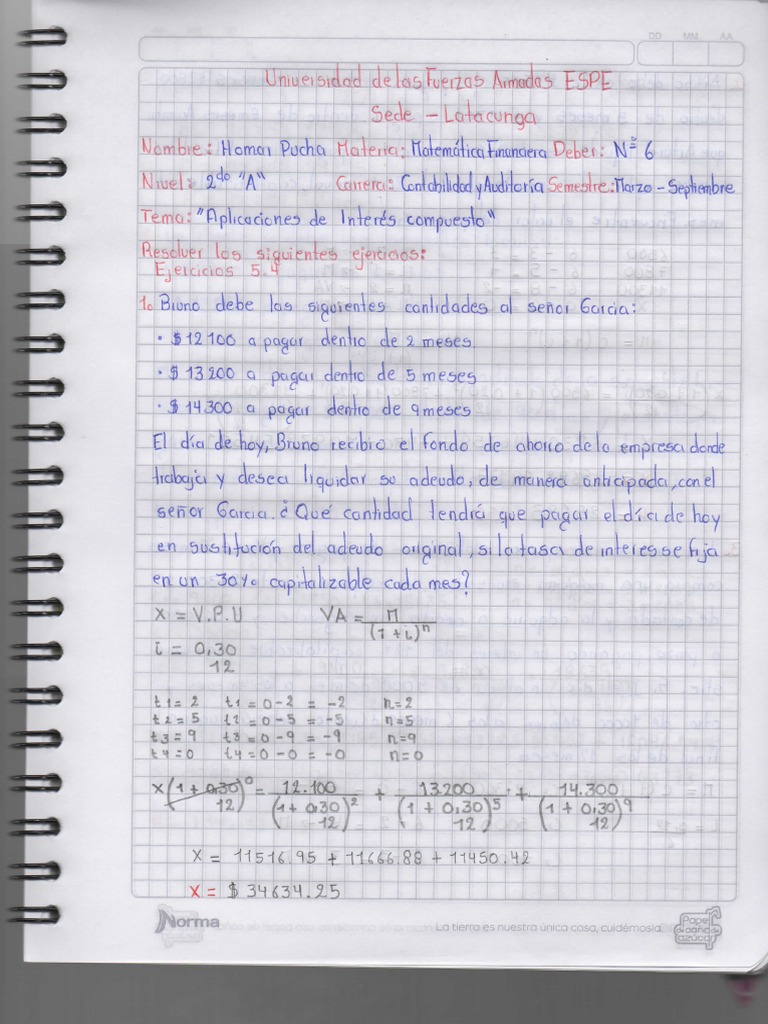 DD MM AA
Universidad de las Fuerzas Armadas ESPE
Sede - Latacunga
Nombre: Homar Pucha Materia: Matemática Financiera Deber: Nº 6
Nivel: 2do "A" Carrera: Contabilidad y Auditoría Semestre: Marzo - Septiembre
Tema: "Aplicaciones de Interés compuesto"
Resolver los siguientes ejercicios:
Ejercicios 5.4
1. Bruno debe las siguientes cantidades al señor Garcia:
· $ 12 100 a pagar dentro de 2 meses
· $ 13 200 a pagar dentro de 5 meses
· $ 14.300 a pagar dentro de 9 meses
El día de hoy, Bruno recibio el fondo de ahorro de la empresa donde
trabaja y desea liquidar su adeudo, de manera anticipada, con el
señor Garcia. ¿Qué cantidad tendrá que pagar el día de hoy
en sustitución del adeudo original, si la tasa de interes se fija
en un 30% capitalizable cada mes?
X = V.P.U VA = M / (1 + i)^n
i = 0,30 / 12
t1 = 2 t1 = 0-2 = -2 n=2
t2 = 5 t2 = 0-5 = -5 n=5
t3 = 9 t3 = 0-9 = -9 n=9
t4 = 0 t4 = 0-0 = -0 n=0
x(1 + 0,30/12)^0 = 12.100 / (1 + 0,30/12)^2 + 13200 / (1 + 0,30/12)^5 + 14.300 / (1 + 0,30/12)^9
X = 11516.95 + 11666.88 + 11450.42
X = $ 34634.25
Norma
La tierra es nuestra única casa, cuidémosla.
Papel de caña de azúcar